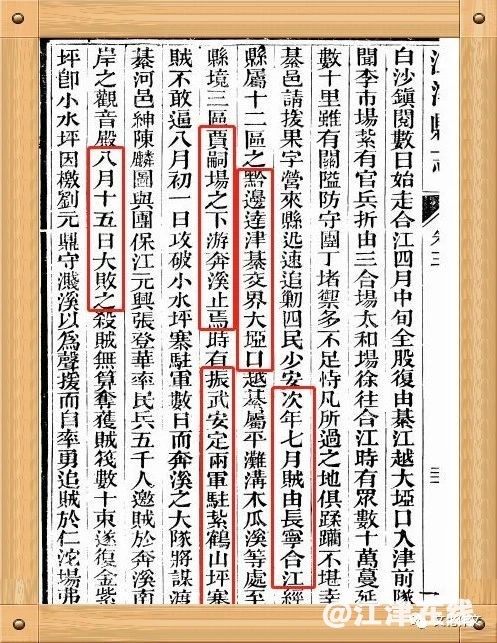 江津縣志
卷三
白沙鎮閱數日始走合江四月中旬全股復由綦江越大埡口入津前隊
聞李市場紮有官兵折由三合場太和場徐往合江時有眾數十萬蔓延
數十里雖有關隘防守團丁堵禦多不足恃凡所過之地俱蹂躪不堪幸
綦邑請援果字營來縣迅速追勦四民少安次年七月賊由長寧合江經
縣屬十二區之黔邊達津綦交界大埡口越綦屬平灘溝木瓜溪等處至
縣境三區賈嗣場之下游奔溪止焉時有振武安定兩軍駐紮鶴山坪寨
賊不敢逼八月初一日攻破小水坪寨駐軍數日而奔溪之大隊將謀渡
綦河邑紳陳麟圖與團保江元興張登華率民兵五千人邀賊於奔溪南
岸之觀音殿八月十五日大敗之殺賊無算奪獲賊筏數十束遂復金紫
坪卽小水坪因檄劉元鼎守濺溪以為聲援而自率勇追賊於仁沱場弗
@江津在线